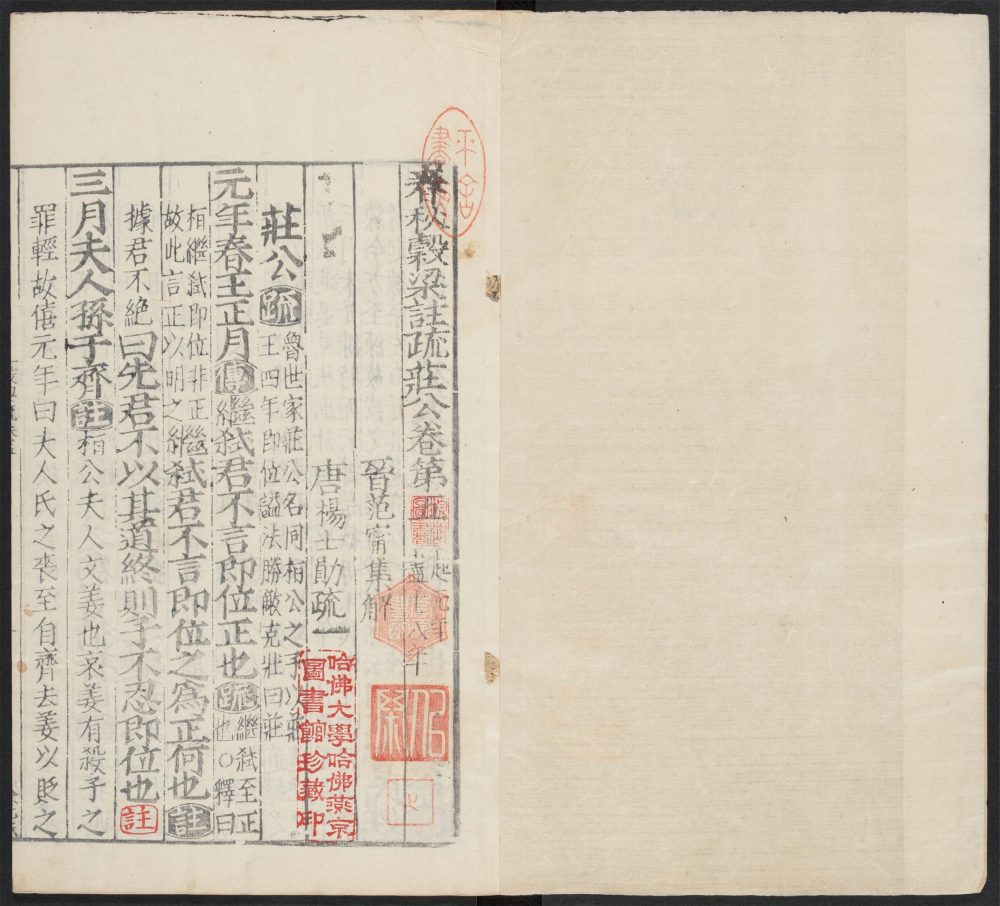 春秋穀梁註疏莊公卷第五
起元年
盡十八年
晉范甯集解
唐楊士勛疏
莊公疏魯世家莊公名同桓公之子以莊
王四年即位謚法勝敵克壯曰莊
元年春王正月傳繼弒君不言即位正也疏繼弒至正
也○釋曰
桓繼弒即位非正
故此言正以明之繼弒君不言即位之為正何也註
據君不絕曰先君不以其道終則子不忍即位也註
三月夫人孫于齊註桓公夫人文姜也哀姜有殺子之
罪輕故僖元年曰夫人氏之喪至自齊去姜以貶之
哈佛大學哈佛燕京
圖書館珍藏印